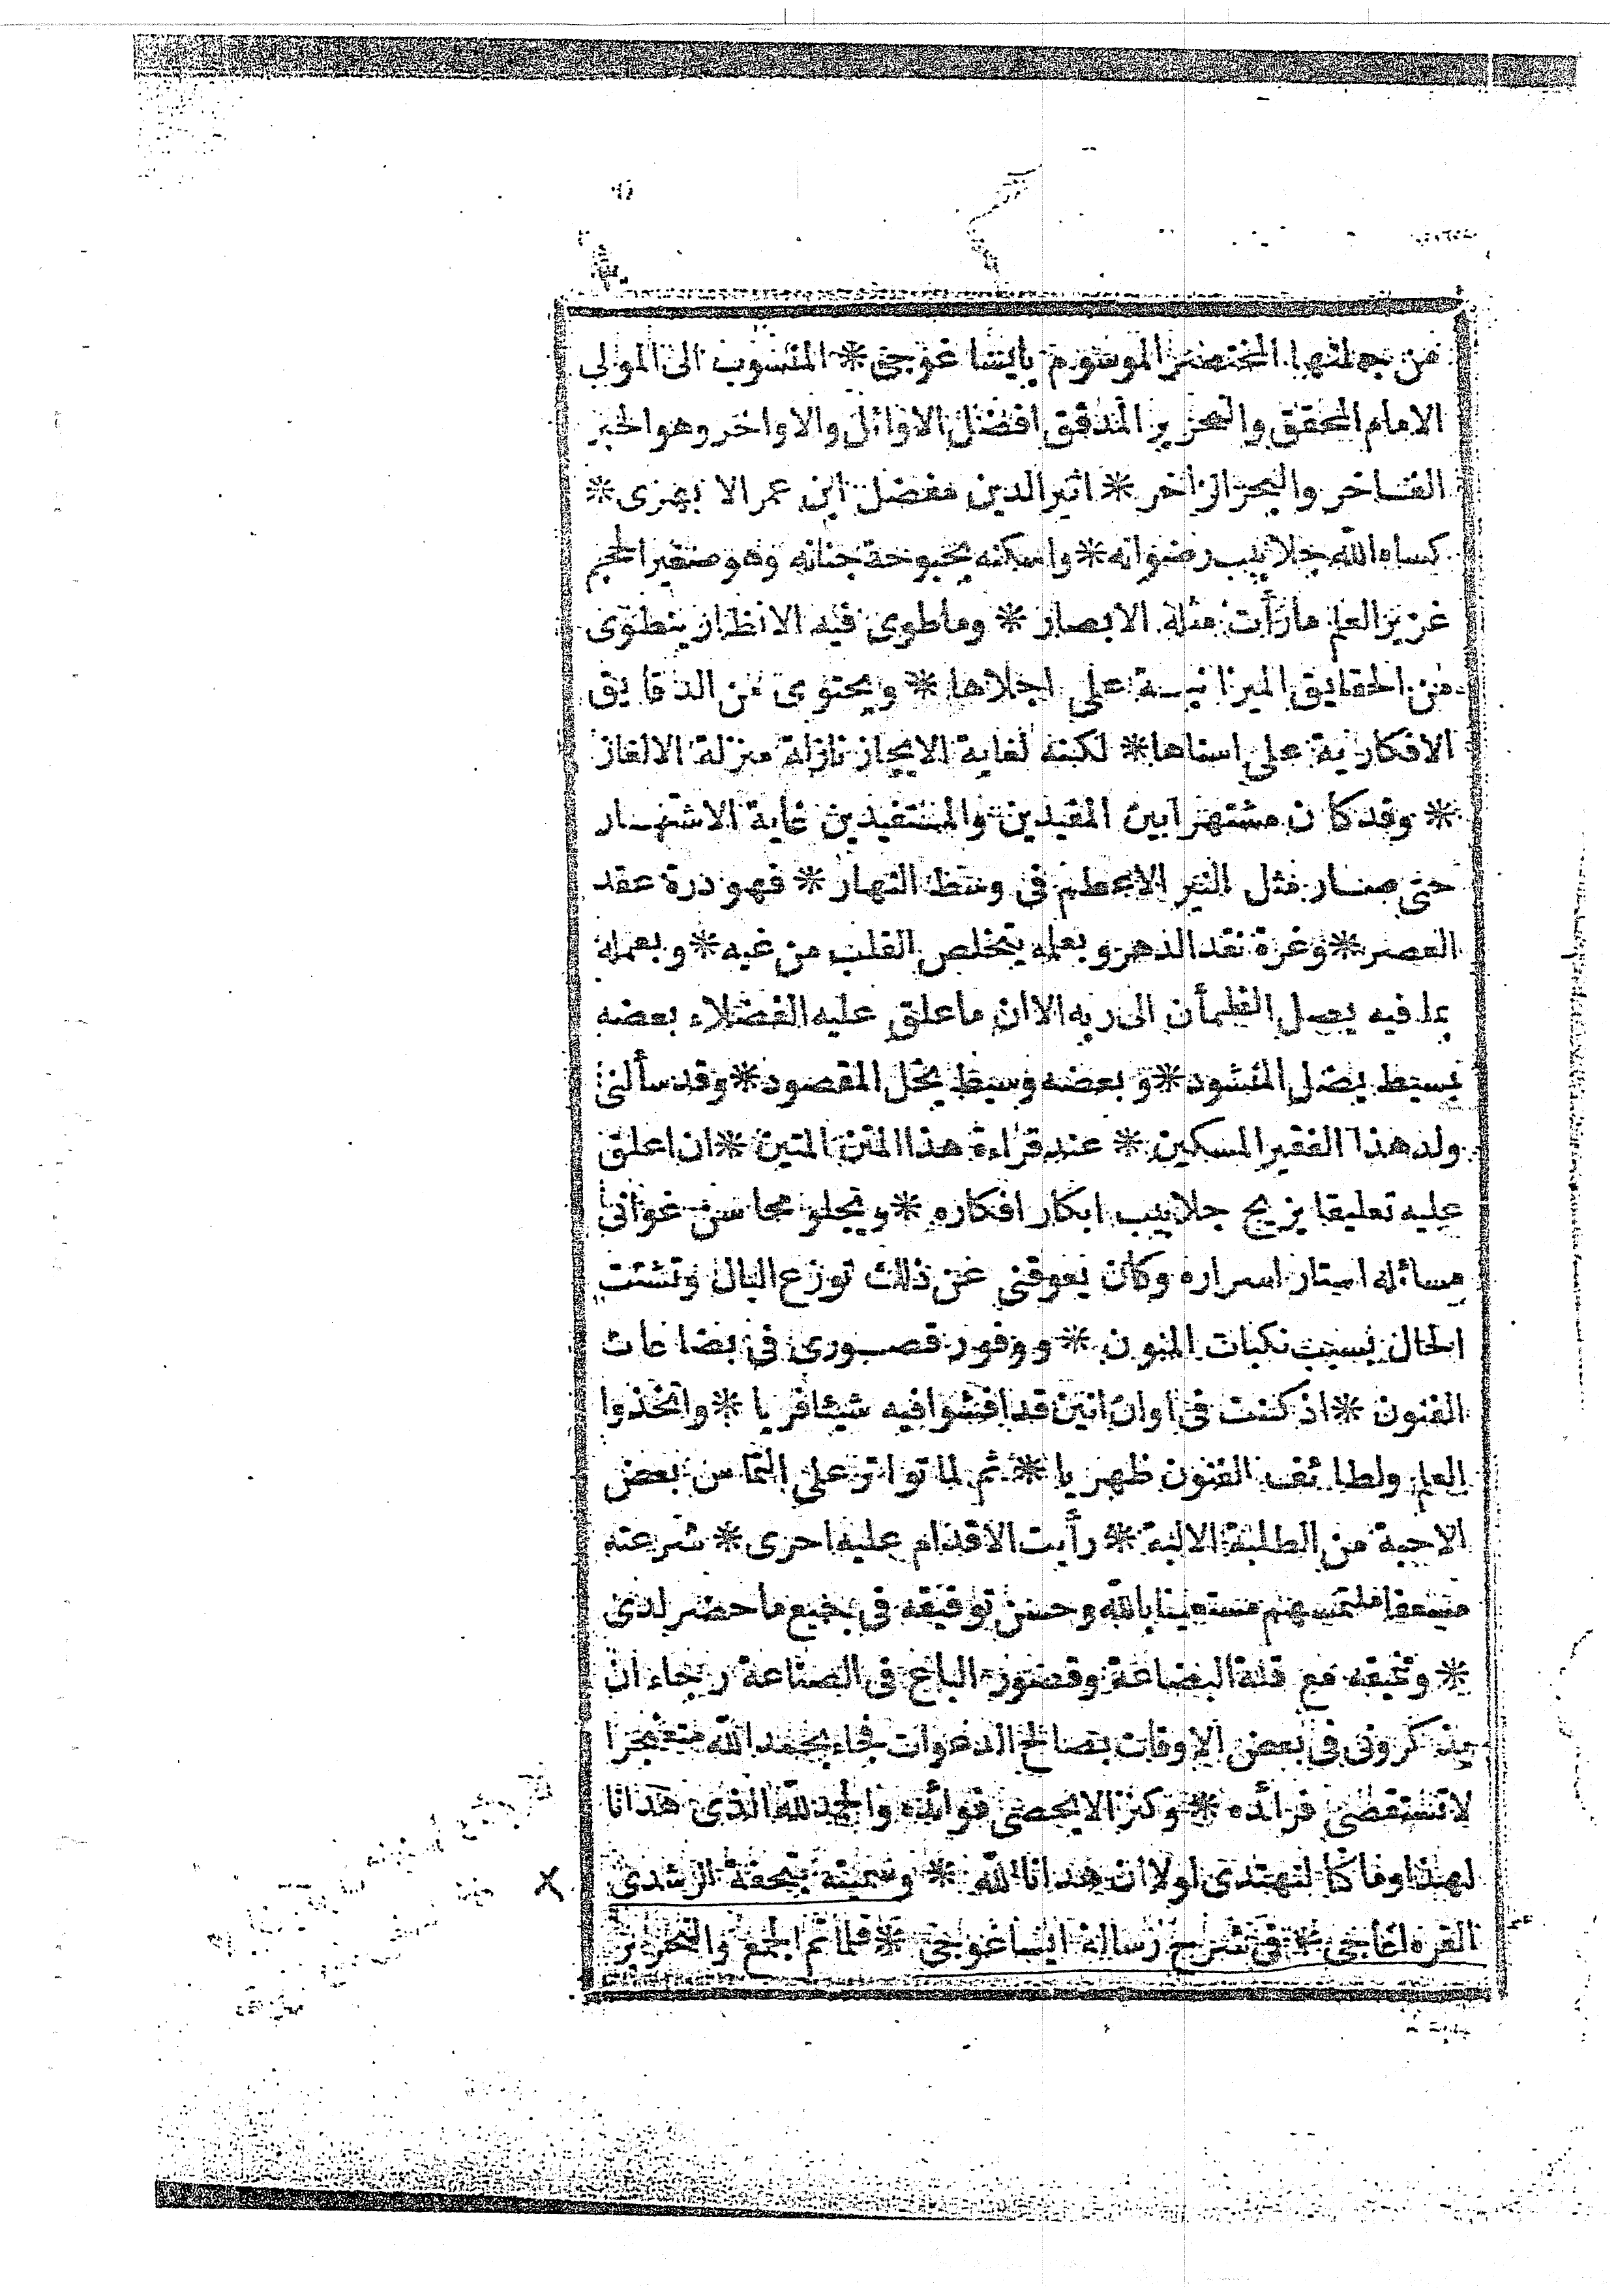 من جملتها المختصر الموسوم بايسا غوجى * المنسوب الى المولى
الامام المحقق والنحرير المدقق افضل الاوائل والاواخر وهو الحبر
الفاخر والبحر الزاخر * اثير الدين مفضل ابن عمر الا بهرى *
كساه الله جلابيب رضوانه * واسكنه بحبوحة جنانه وهو صغير الحجم
غزير العلم ما رأت مثله الابصار * وما طوى فيه الانظار ينطوى
من الحقايق الميزانية على اجلاها * ويحتوى من الدقايق
الافكارية على اسناها * لكنه لغاية الايجاز نازلة منزلة الالغاز
* وقد كان مشتهرا بين المفيدين والمستفيدين غاية الاشتهار
حتى صار مثل النير الاعظم فى وسط النهار * فهو درة عقد
العصر * وغرة نقد الدهر وبعلمه يتخلص القلب من غيه * وبعمله
بما فيه يصل الظمأن الى ربه الا ان ما علق عليه الفضلاء بعضه
بسيط يضل المنشود * وبعضه وسيط يخل المقصود * وقد سألنى
ولد هذا الفقير المسكين * عند قراءة هذا المتن المتين * ان اعلق
عليه تعليقا يزيح جلابيب ابكار افكاره * ويجلو محاسن غوانى
مسائله استار اسراره وكان يعوقنى عن ذلك توزع البال وتشتت
الحال بسبب نكبات المنون * ووفور قصورى فى بضاعات
الفنون * اذ كنت فى اوان انين قد افشوا فيه شيئا فريا * واتخذوا
العلم ولطائف الفنون ظهريا * ثم لما تواتر على التماس بعض
الاحبة من الطلبة الالبة * رأيت الاقدام عليه احرى * شرعته
مسعفا ملتمسهم مستعينا بالله وحسن توفيقه فى جميع ما حضر لدى
* وتحيقه مع قلة البضاعة وقصور الباع فى الصناعة رجاء ان
يذكرونى فى بعض الاوقات بصالح الدعوات فجاء بحمد الله
لا تستقصى فرائده * وكنزا لا يحصى فوائده والحمد لله الذى هدانا
لهذا وما كنا لنهتدى لولا ان هدانا الله * وسميته بتحفة الرشدى
القره اغاجى * فى شرح رسالة ايساغوجى * فلما تم الجمع والتحرير